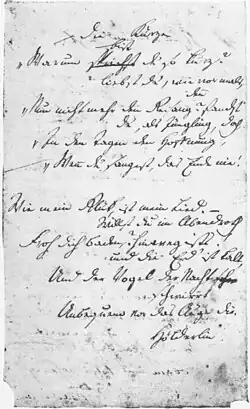 Die Kürze
bist
„Warum du so kurz?
liebst du, wie vormals,
denn
„Nun nicht mehr den Gesang? fandst
du, als Jüngling, doch,
„In den Tagen der Hoffnung,
„Wenn du sangest, das Ende nie!
Wie mein Glük, ist mein Lied.
Willst du im Abendroth
Froh dich baden? hinweg ists!
und die Erd ist kalt
Und der Vogel der Nacht
schwirrt
Unbequem vor das Auge dir.
Hölderlin